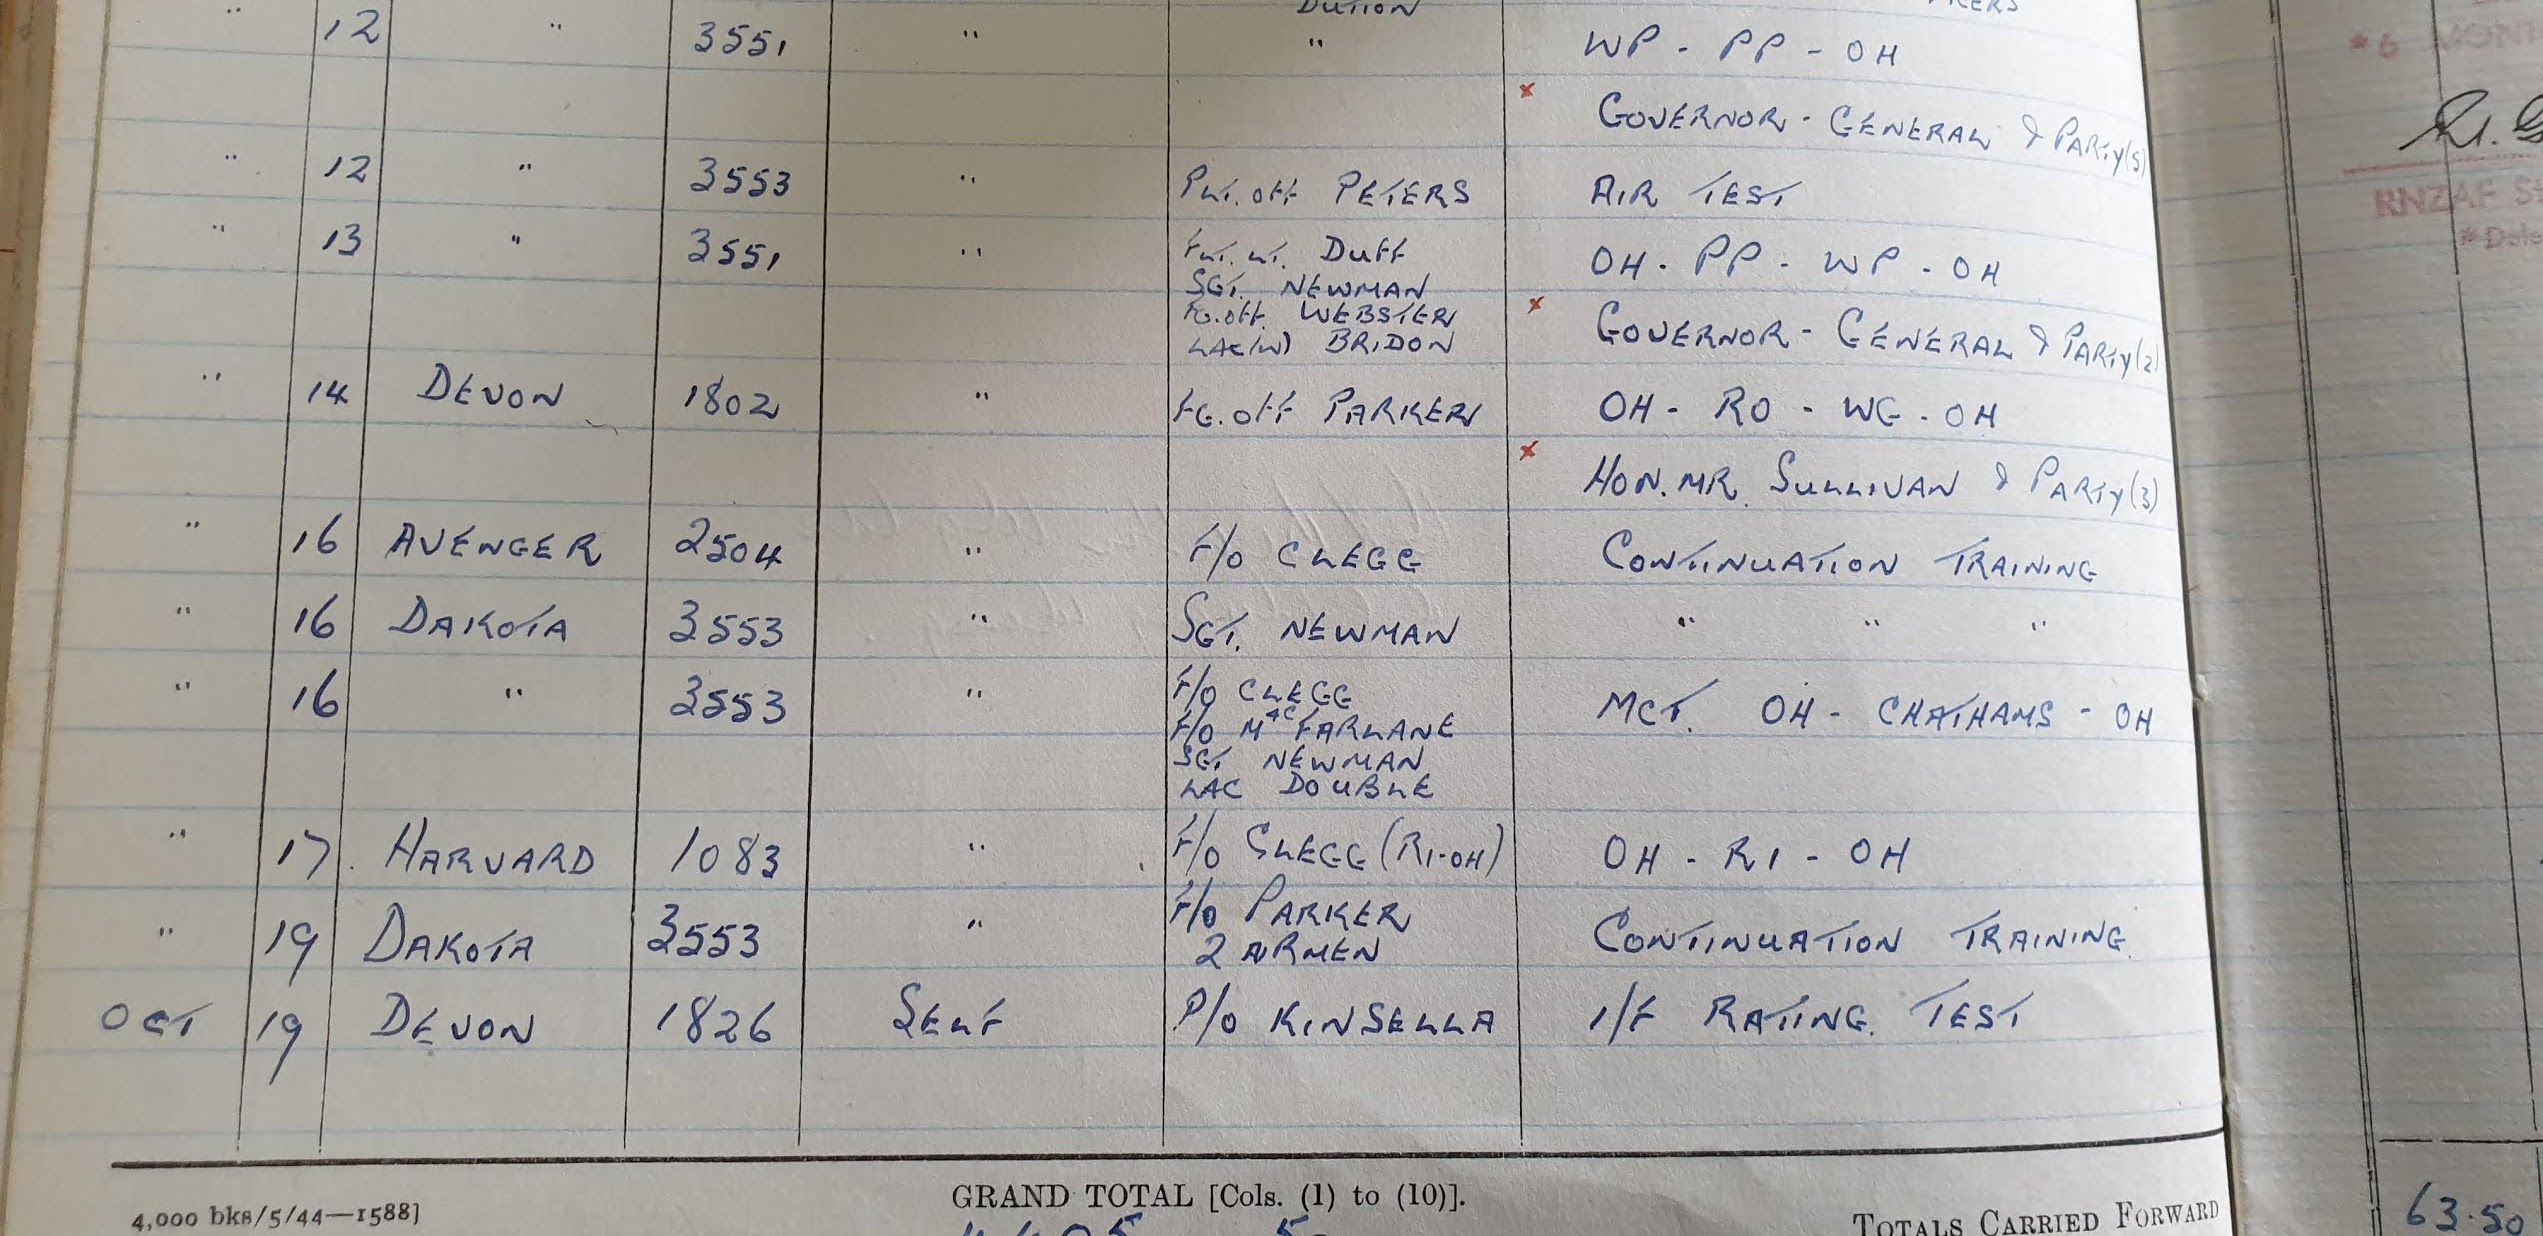 " 12 " 3551 " " WP - PP - OH
GOVERNOR - GENERAL & PARTY(5)
" 12 " 3553 " PLT. OFF PETERS AIR TEST
" 13 " 3551 " FLT. LT. DUFF OH - PP - WP - OH
SGT. NEWMAN
FG. OFF. WEBSTER GOVERNOR - GENERAL & PARTY(2)
LAC(W) BRIDON
" 14 DEVON 1802 " FG. OFF PARKER OH - RO - WG - OH
HON. MR. SULLIVAN & PARTY(3)
" 16 AVENGER 2504 " F/O CLEGG CONTINUATION TRAINING
" 16 DAKOTA 3553 " SGT. NEWMAN " " "
" 16 " 3553 " F/O CLEGG MCT. OH - CHATHAMS - OH
F/O MACFARLANE
SGT NEWMAN
LAC DOUBLE
" 17 HARVARD 1083 " F/O CLEGG (RI-OH) OH - RI - OH
" 19 DAKOTA 3553 " F/O PARKER CONTINUATION TRAINING
2 AIRMEN
OCT 19 DEVON 1826 SELF P/O KINSELLA I/F RATING TEST
4,000 bks/5/44—1588]
GRAND TOTAL [Cols. (1) to (10)].
TOTALS CARRIED FORWARD
63.50
* 6
RNZAF